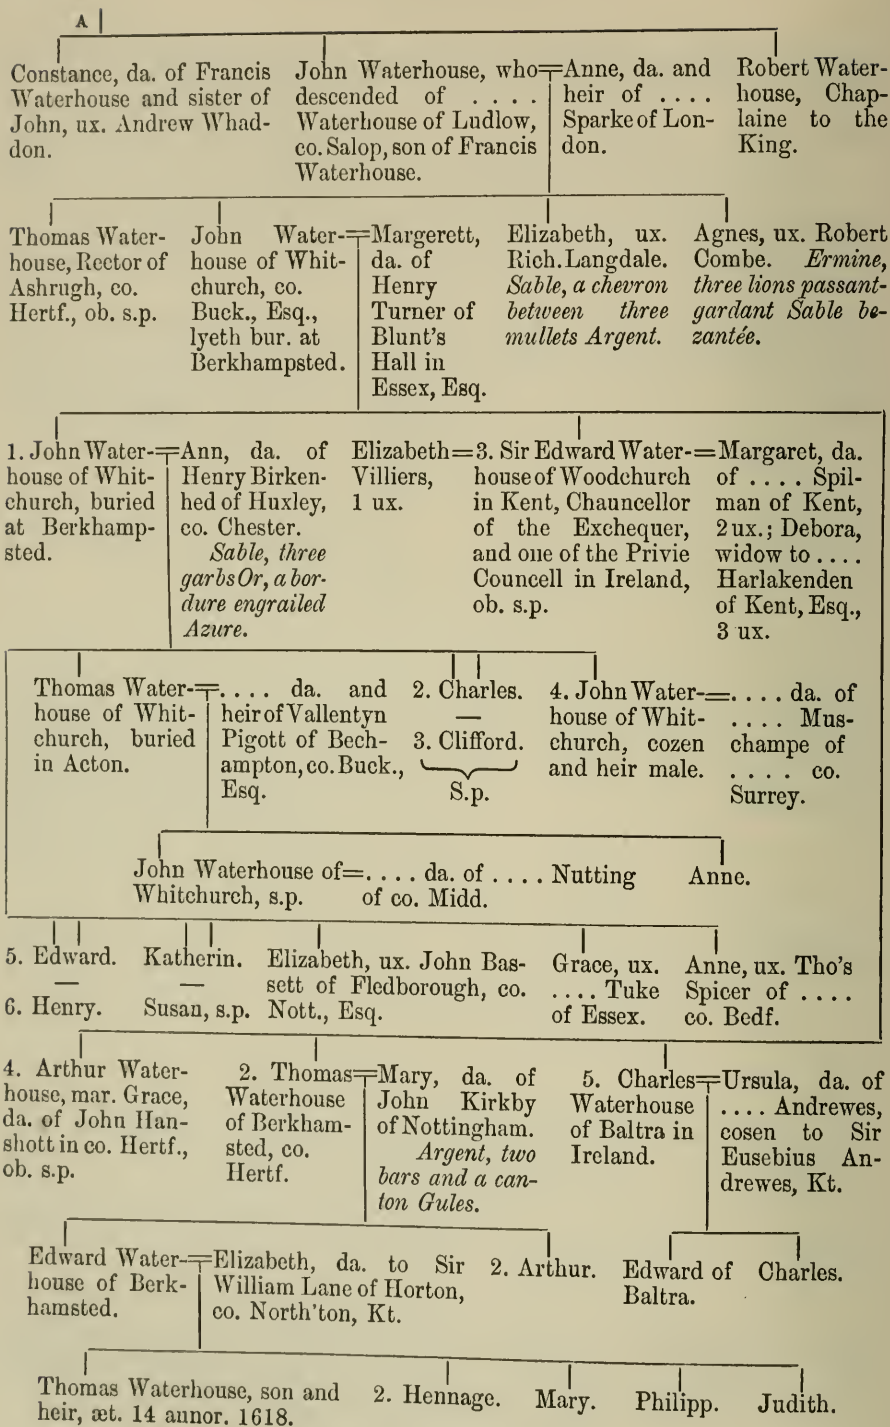 A
Constance, da. of Francis
Waterhouse and sister of
John, ux. Andrew Whad-
don.
John Waterhouse, who
descended of . . . .
Waterhouse of Ludlow,
co. Salop, son of Francis
Waterhouse.
Anne, da. and
heir of . . . .
Sparke of Lon-
don.
Robert Water-
house, Chap-
laine to the
King.
Thomas Water-
house, Rector of
Ashrugh, co.
Hertf., ob. s.p.
John Water-
house of Whit-
church, co.
Buck., Esq.,
lyeth bur. at
Berkhampsted.
Margerett,
da. of
Henry
Turner of
Blunt's
Hall in
Essex, Esq.
Elizabeth, ux.
Rich. Langdale.
Sable, a chevron
between three
mullets Argent.
Agnes, ux. Robert
Combe. Ermine,
three lions passant-
gardant Sable be-
zantée.
1. John Water-
house of Whit-
church, buried
at Berkhamp-
sted.
Ann, da. of
Henry Birken-
hed of Huxley,
co. Chester.
Sable, three
garbs Or, a bor-
dure engrailed
Azure.
Elizabeth
Villiers,
1 ux.
3. Sir Edward Water-
house of Woodchurch
in Kent, Chauncellor
of the Exchequer,
and one of the Privie
Councell in Ireland,
ob. s.p.
Margaret, da.
of . . . . Spil-
man of Kent,
2 ux.; Debora,
widow to . . . .
Harlakenden
of Kent, Esq.,
3 ux.
Thomas Water-
house of Whit-
church, buried
in Acton.
. . . . da. and
heir of Vallentyn
Pigott of Bech-
ampton, co. Buck.,
Esq.
2. Charles.
—
3. Clifford.
S.p.
4. John Water-
house of Whit-
church, cozen
and heir male.
. . . . da. of
. . . . Mus-
champe of
. . . . co.
Surrey.
John Waterhouse of
Whitchurch, s.p.
. . . . da. of . . . . Nutting
of co. Midd.
Anne.
5. Edward.
—
6. Henry.
Katherin.
—
Susan, s.p.
Elizabeth, ux. John Bas-
sett of Fledborough, co.
Nott., Esq.
Grace, ux.
. . . . Tuke
of Essex.
Anne, ux. Tho's
Spicer of . . . .
co. Bedf.
4. Arthur Water-
house, mar. Grace,
da. of John Han-
shott in co. Hertf.,
ob. s.p.
2. Thomas
Waterhouse
of Berkham-
sted, co.
Hertf.
Mary, da. of
John Kirkby
of Nottingham.
Argent, two
bars and a can-
ton Gules.
5. Charles
Waterhouse
of Baltra in
Ireland.
Ursula, da. of
. . . . Andrewes,
cosen to Sir
Eusebius An-
drewes, Kt.
Edward Water-
house of Berk-
hamsted.
Elizabeth, da. to Sir
William Lane of Horton,
co. North'ton, Kt.
2. Arthur.
Edward of
Baltra.
Charles.
Thomas Waterhouse, son and
heir, æt. 14 annor. 1618.
2. Hennage.
Mary.
Philipp.
Judith.